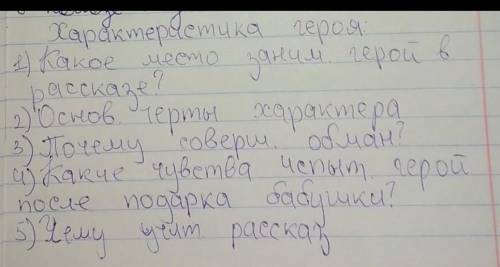 Характеристика героя:
1) Какое место заним. герой в
рассказе?
2) Основ. черты характера
3) Почему соверш. обман?
4) Какие чувства испыт. герой
после подарка бабушки?
5) Чему учит рассказ